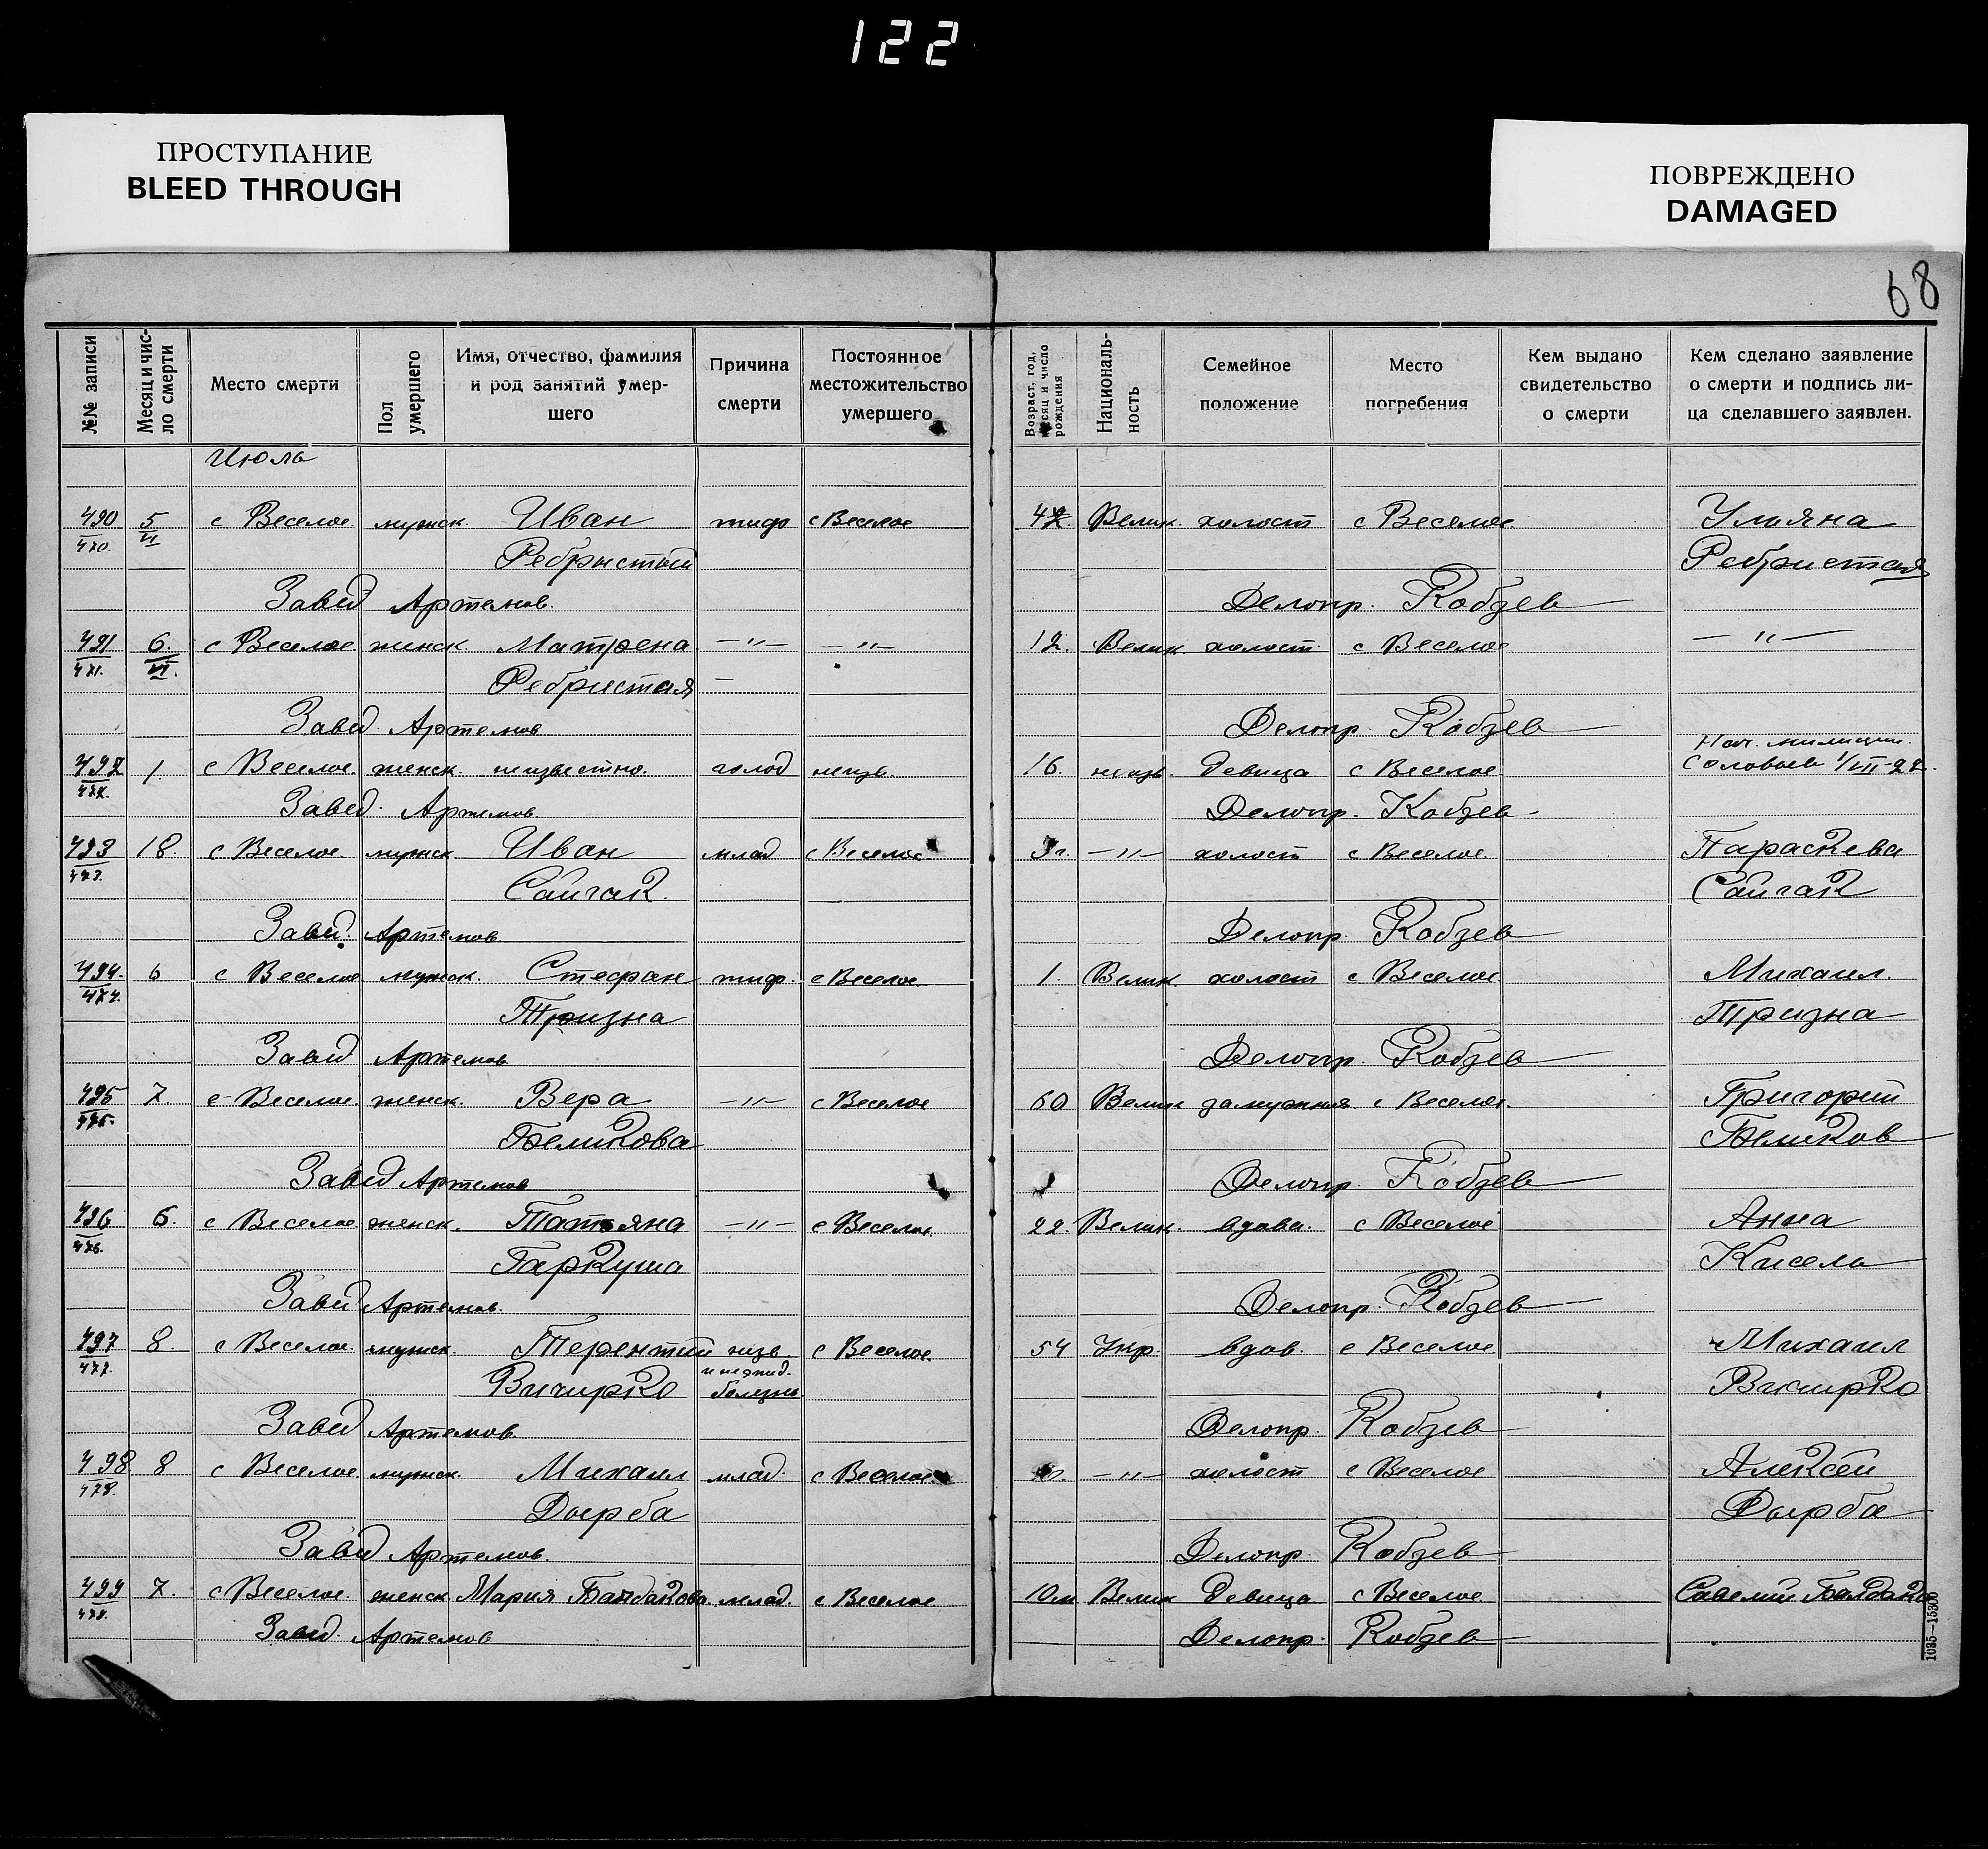 122
ПРОСТУПАНИЕ
BLEED THROUGH
ПОВРЕЖДЕНО
DAMAGED
68
№№ записи | Месяц и число смерти | Место смерти | Пол умершего | Имя, отчество, фамилия и род занятий умершего | Причина смерти | Постоянное местожительство умершего | Возраст, год, месяц и число рождения | Национальность | Семейное положение | Место погребения | Кем выдано свидетельство о смерти | Кем сделано заявление о смерти и подпись лица сделавшего заявлен.
Июль
490 5 с Веселое мужск. Иван тиф с Веселое Велик. холост с Веселое Ульяна
470. VI Ребристый Ребристая
Завед Артемов. Делопр. Кобзев
491 6. с Веселое женск. Матрена —"— —"— 12. Велик. холост. с Веселое —"—
471. VI. Ребристая —
Завед. Артемов Делопр. Кобзев
Нач. милиции
492 1. с Веселое. женск. неизвестно. голод неизв. 16. неизв. девица с Веселое Соловьев 1/VII-22.
472. Завед. Артемов Делопр. Кобзев
493 18. с Веселое мужск Иван млад с Веселое —"— холост с Веселое. Параскева
473. Сайгак. Сайгак
Завед. Артемов Делопр. Кобзев
494. 6 с Веселое мужск. Стефан тиф. с Веселое 1. Велик холост с Веселое Михаил.
474. Тризна Тризна
Завед Артемов Делопр. Кобзев
495 7. с Веселое. женск. Вера —"— с Веселое 60 Велик замужняя с Веселое. Григорий
475. Беликова Беликов
Завед Артемов Делопр. Кобзев
496 6. с Веселое женск. Татьяна —"— с Веселое. 22. Велик. вдова. с Веселое Анна
476. Гаркуша Кисель
Завед Артемов. Делопр. Кобзев
497 8. с Веселое мужск. Терентий с Веселое. 54 Укр вдов. с Веселое Михаил
477. Вичирко болезнь Вичирко
Завед Артемов. Делопр. Кобзев
498 8 с Веселое мужск. Михаил млад. с Веселое —"— холост с Веселое Алексей
478. Дырба Дырба
Завед Артемов. Делопр. Кобзев
499 7. с Веселое женск Мария млад. с Веселое 10м Велик девица с Веселое Савелий
479. Завед. Артемов Делопр. Кобзев
1035—15300